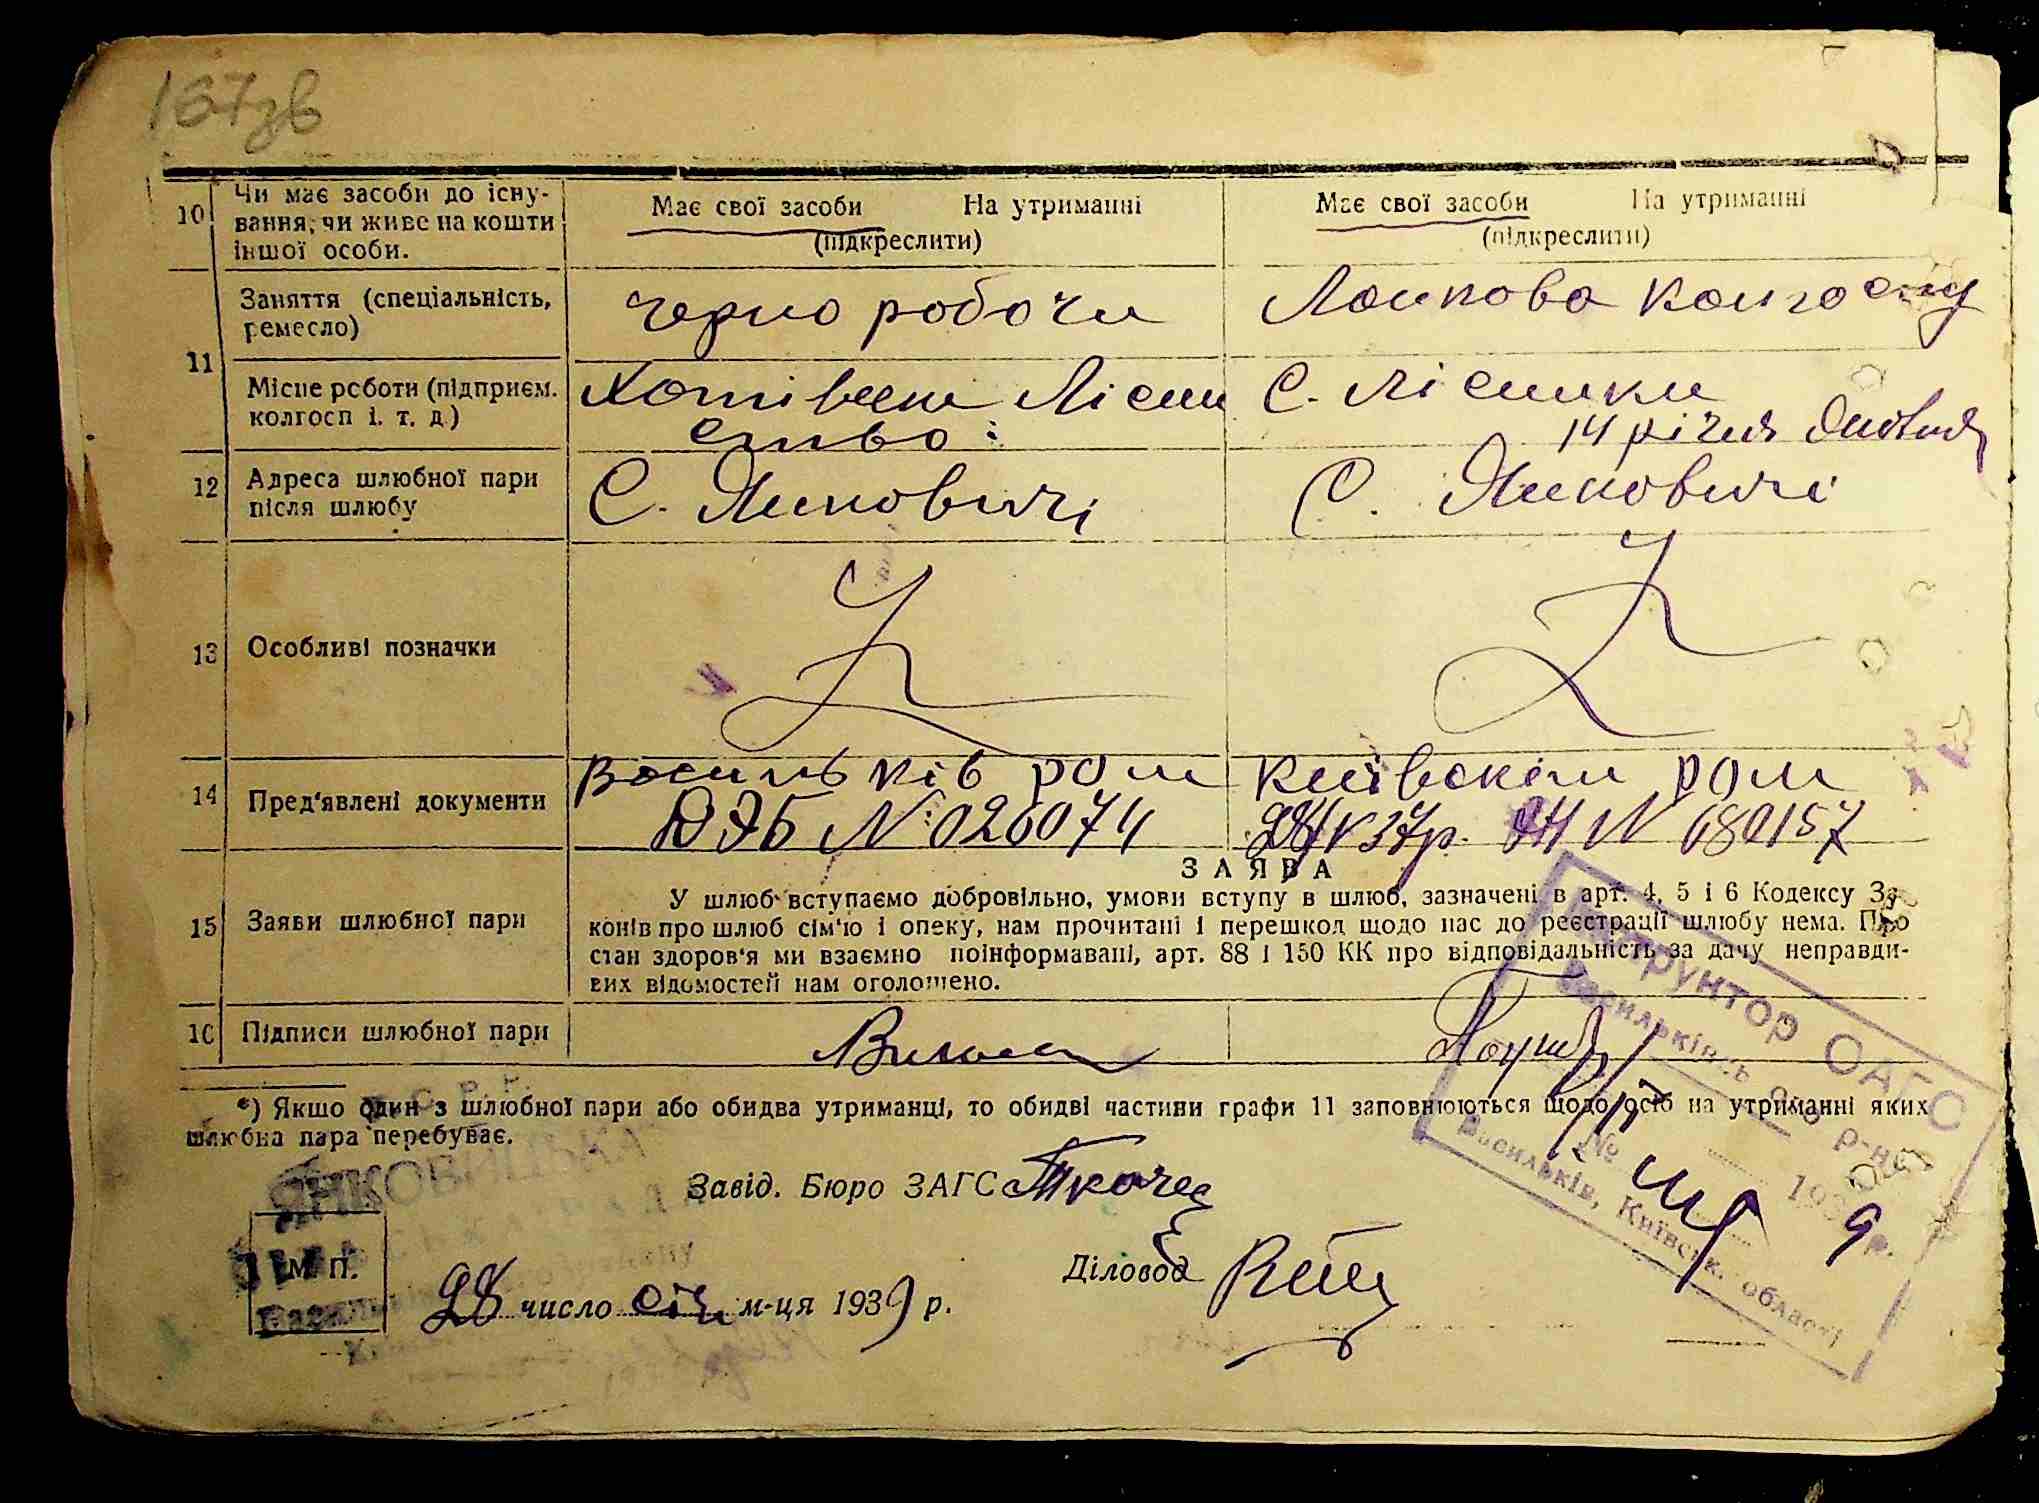 167зв
10 Чи має засоби до існу-
вання, чи живе на кошти
іншої особи.
Має свої засоби На утриманні
(підкреслити)
Має свої засоби На утриманні
(підкреслити)
11 Заняття (спеціальність,
ремесло)
черно робочи
Лонкова колгоспу
Місце роботи (підприєм.
колгосп і. т. д)
Хотівське Лісни
ство
С. Лісники
14 річчя Жовтня
12 Адреса шлюбної пари
після шлюбу
С. Янковичі
С. Янковичі
13 Особливі позначки
14 Пред'явлені документи
Васильків ром
№ 026074
Київским ром
37р. № 680157
15 Заяви шлюбної пари
ЗАЯВА
У шлюб вступаємо добровільно, умови вступу в шлюб, зазначені в арт. 4, 5 і 6 Кодексу За-
конів про шлюб сім'ю і опеку, нам прочитані і перешкод щодо нас до реєстрації шлюбу нема. Про
стан здоров'я ми взаємно поінформавані, арт. 88 і 150 КК про відповідальність за дачу неправди-
вих відомостей нам оголошено.
16 Підписи шлюбної пари
*) Якшо один з шлюбної пари або обидва утриманці, то обидві частини графи 11 заповнюються щодо осіб на утриманні яких
шлюбна пара перебуває.
Завід. Бюро ЗАГС Ткачен
Діловод
М. П.
28 число січ м-ця 1939 р.
Інструктор ОАГС
Васильківськ. р-ну
№ 1939 р.
Васильків, Київськ. області